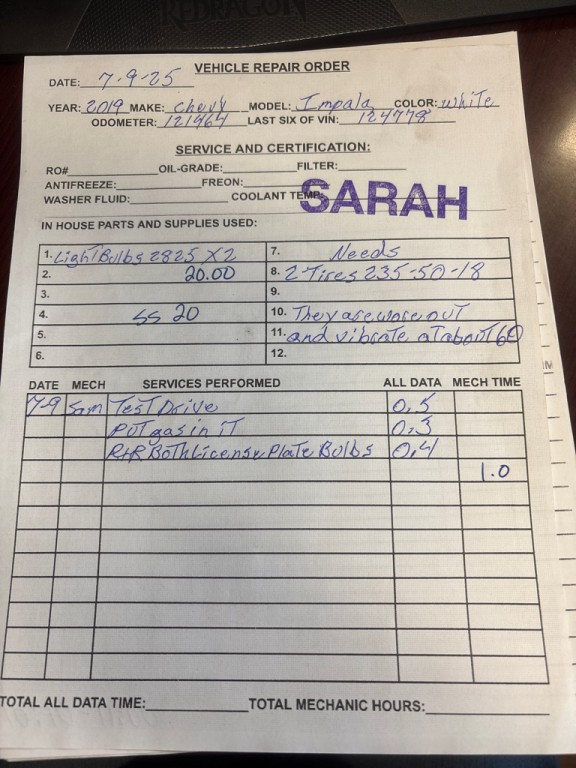 REDRAGON
VEHICLE REPAIR ORDER
DATE: 7-9-25
YEAR: 2019 MAKE: Chevy MODEL: Impala COLOR: White
ODOMETER: 121464 LAST SIX OF VIN: 124778
SERVICE AND CERTIFICATION:
RO# OIL-GRADE: FILTER:
ANTIFREEZE: FREON:
WASHER FLUID: COOLANT TEMP:
SARAH
IN HOUSE PARTS AND SUPPLIES USED:
1. Light Bulbs 2825 X2 7. Needs
2. 20.00 8. 2 Tires 235-50-18
3. 9.
4. SS 20 10. They are wore out
5. 11. and vibrate at about 60
6. 12.
DATE MECH SERVICES PERFORMED ALL DATA MECH TIME
7-9 Sam Test Drive 0,5
Put gas in it 0,3
R+R Both License Plate Bulbs 0,4
1.0
TOTAL ALL DATA TIME: TOTAL MECHANIC HOURS: